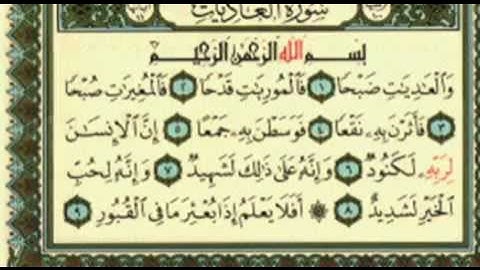 سورة العاديات
بسم الله الرحمن الرحيم
وَالْعَٰدِيَٰتِ ضَبْحًا ١ فَالْمُورِيَٰتِ قَدْحًا ٢ فَالْمُغِيرَٰتِ صُبْحًا
٣ فَأَثَرْنَ بِهِۦ نَقْعًا ٤ فَوَسَطْنَ بِهِۦ جَمْعًا ٥ إِنَّ الْإِنسَٰنَ
لِرَبِّهِۦ لَكَنُودٌ ٦ وَإِنَّهُۥ عَلَىٰ ذَٰلِكَ لَشَهِيدٌ ٧ وَإِنَّهُۥ لِحُبِّ
الْخَيْرِ لَشَدِيدٌ ٨ ۞ أَفَلَا يَعْلَمُ إِذَا بُعْثِرَ مَا فِي الْقُبُورِ ٩